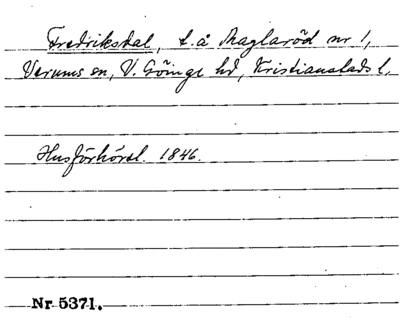 Fredriksdal, t. å Maglaröd nr 1,
Verums sn, V. Göinge hd, Kristianstads l.
Husförhörsl. 1846.
Nr 5371.